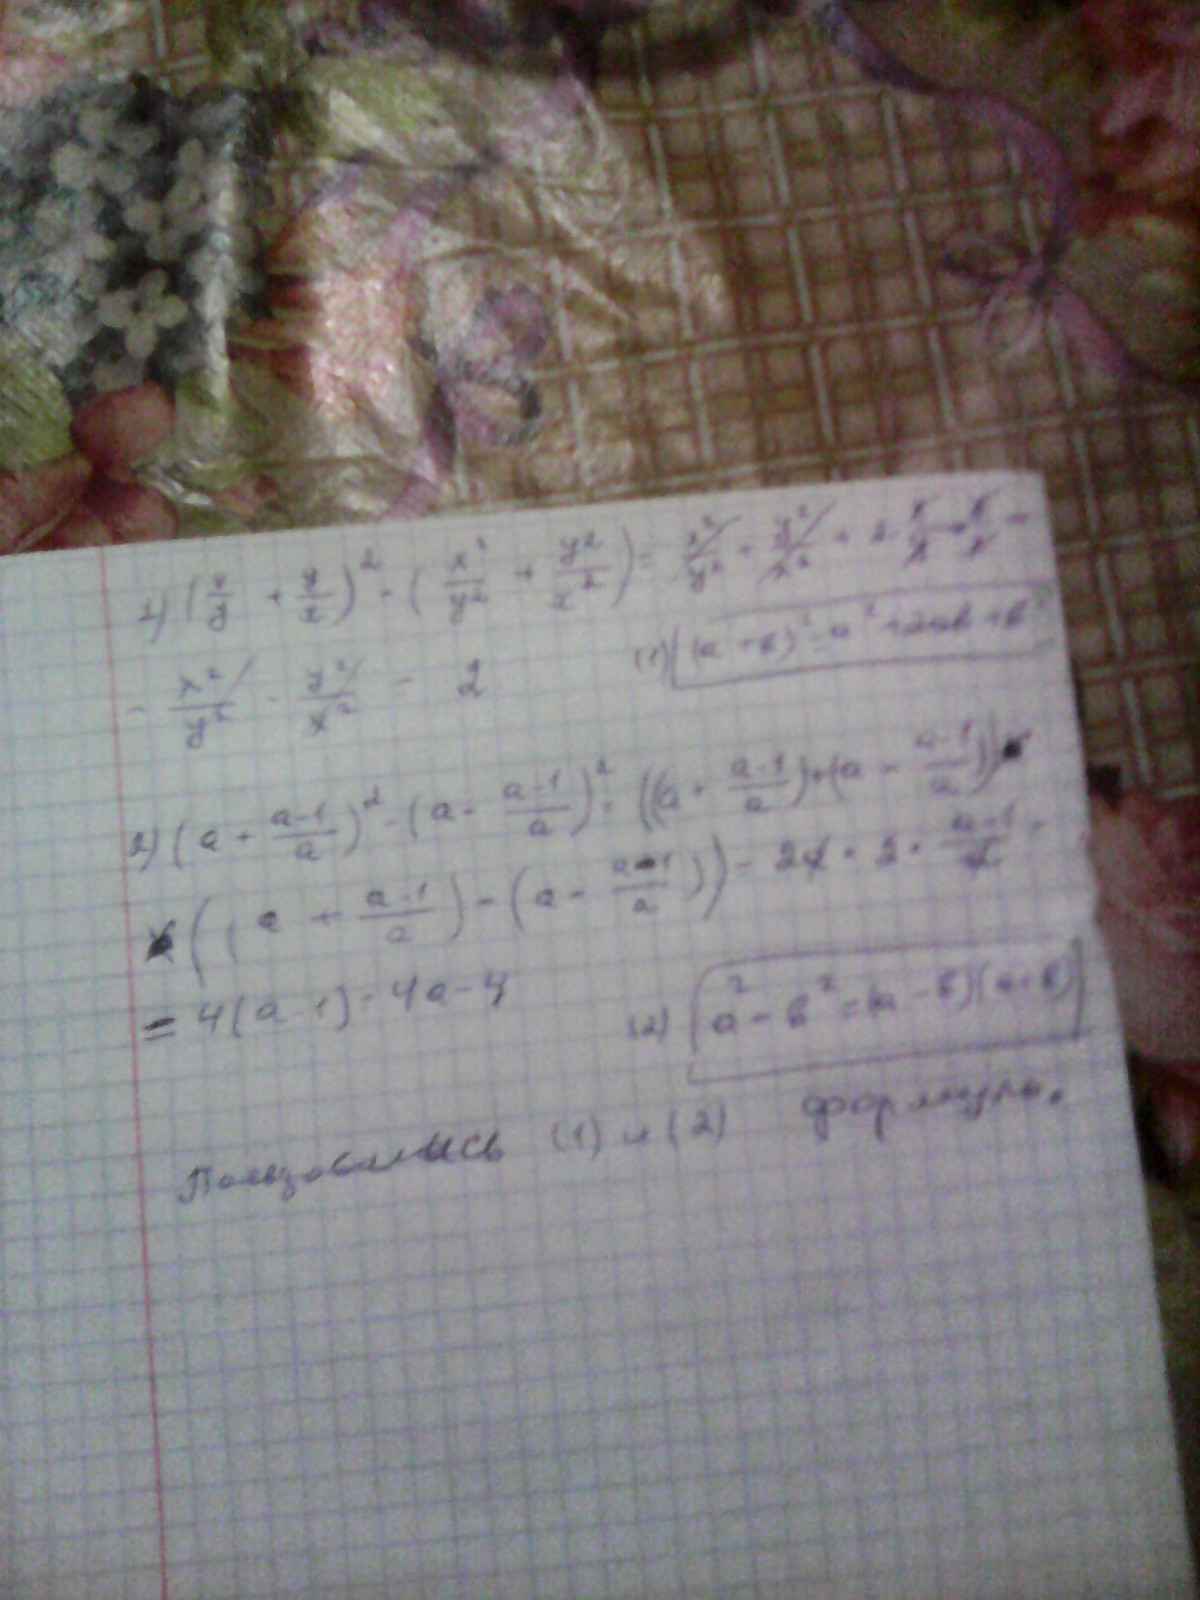 1) (x/y + y/x)² - (x²/y² + y²/x²) = x²/y² + y²/x² + 2 ·
- x²/y² - y²/x² = 2
(1) (a + b)² = a² + 2ab + b²
2) (a + a-1/a)² - (a - a-1/a)² = ((a + a-1/a) + (a - a-1/a))
× ((a + a-1/a) - (a - a-1/a)) = 2a · 2 · a-1/a =
= 4(a-1) = 4a-4
(2) a² - b² = (a-b)(a+b)
Пользовались (1) и (2) формулы.